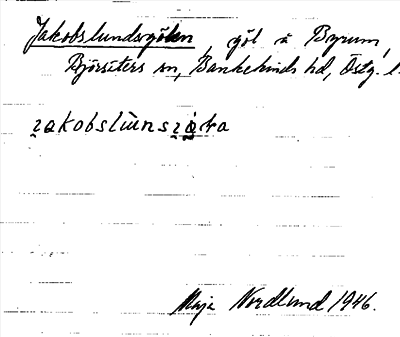 Jakobslundsgölen, göl å Byrum,
Björsäters sn, Bankekinds hd, Östg. l.
jakobslùnsjö̀ra
Maja Nordlund 1946.